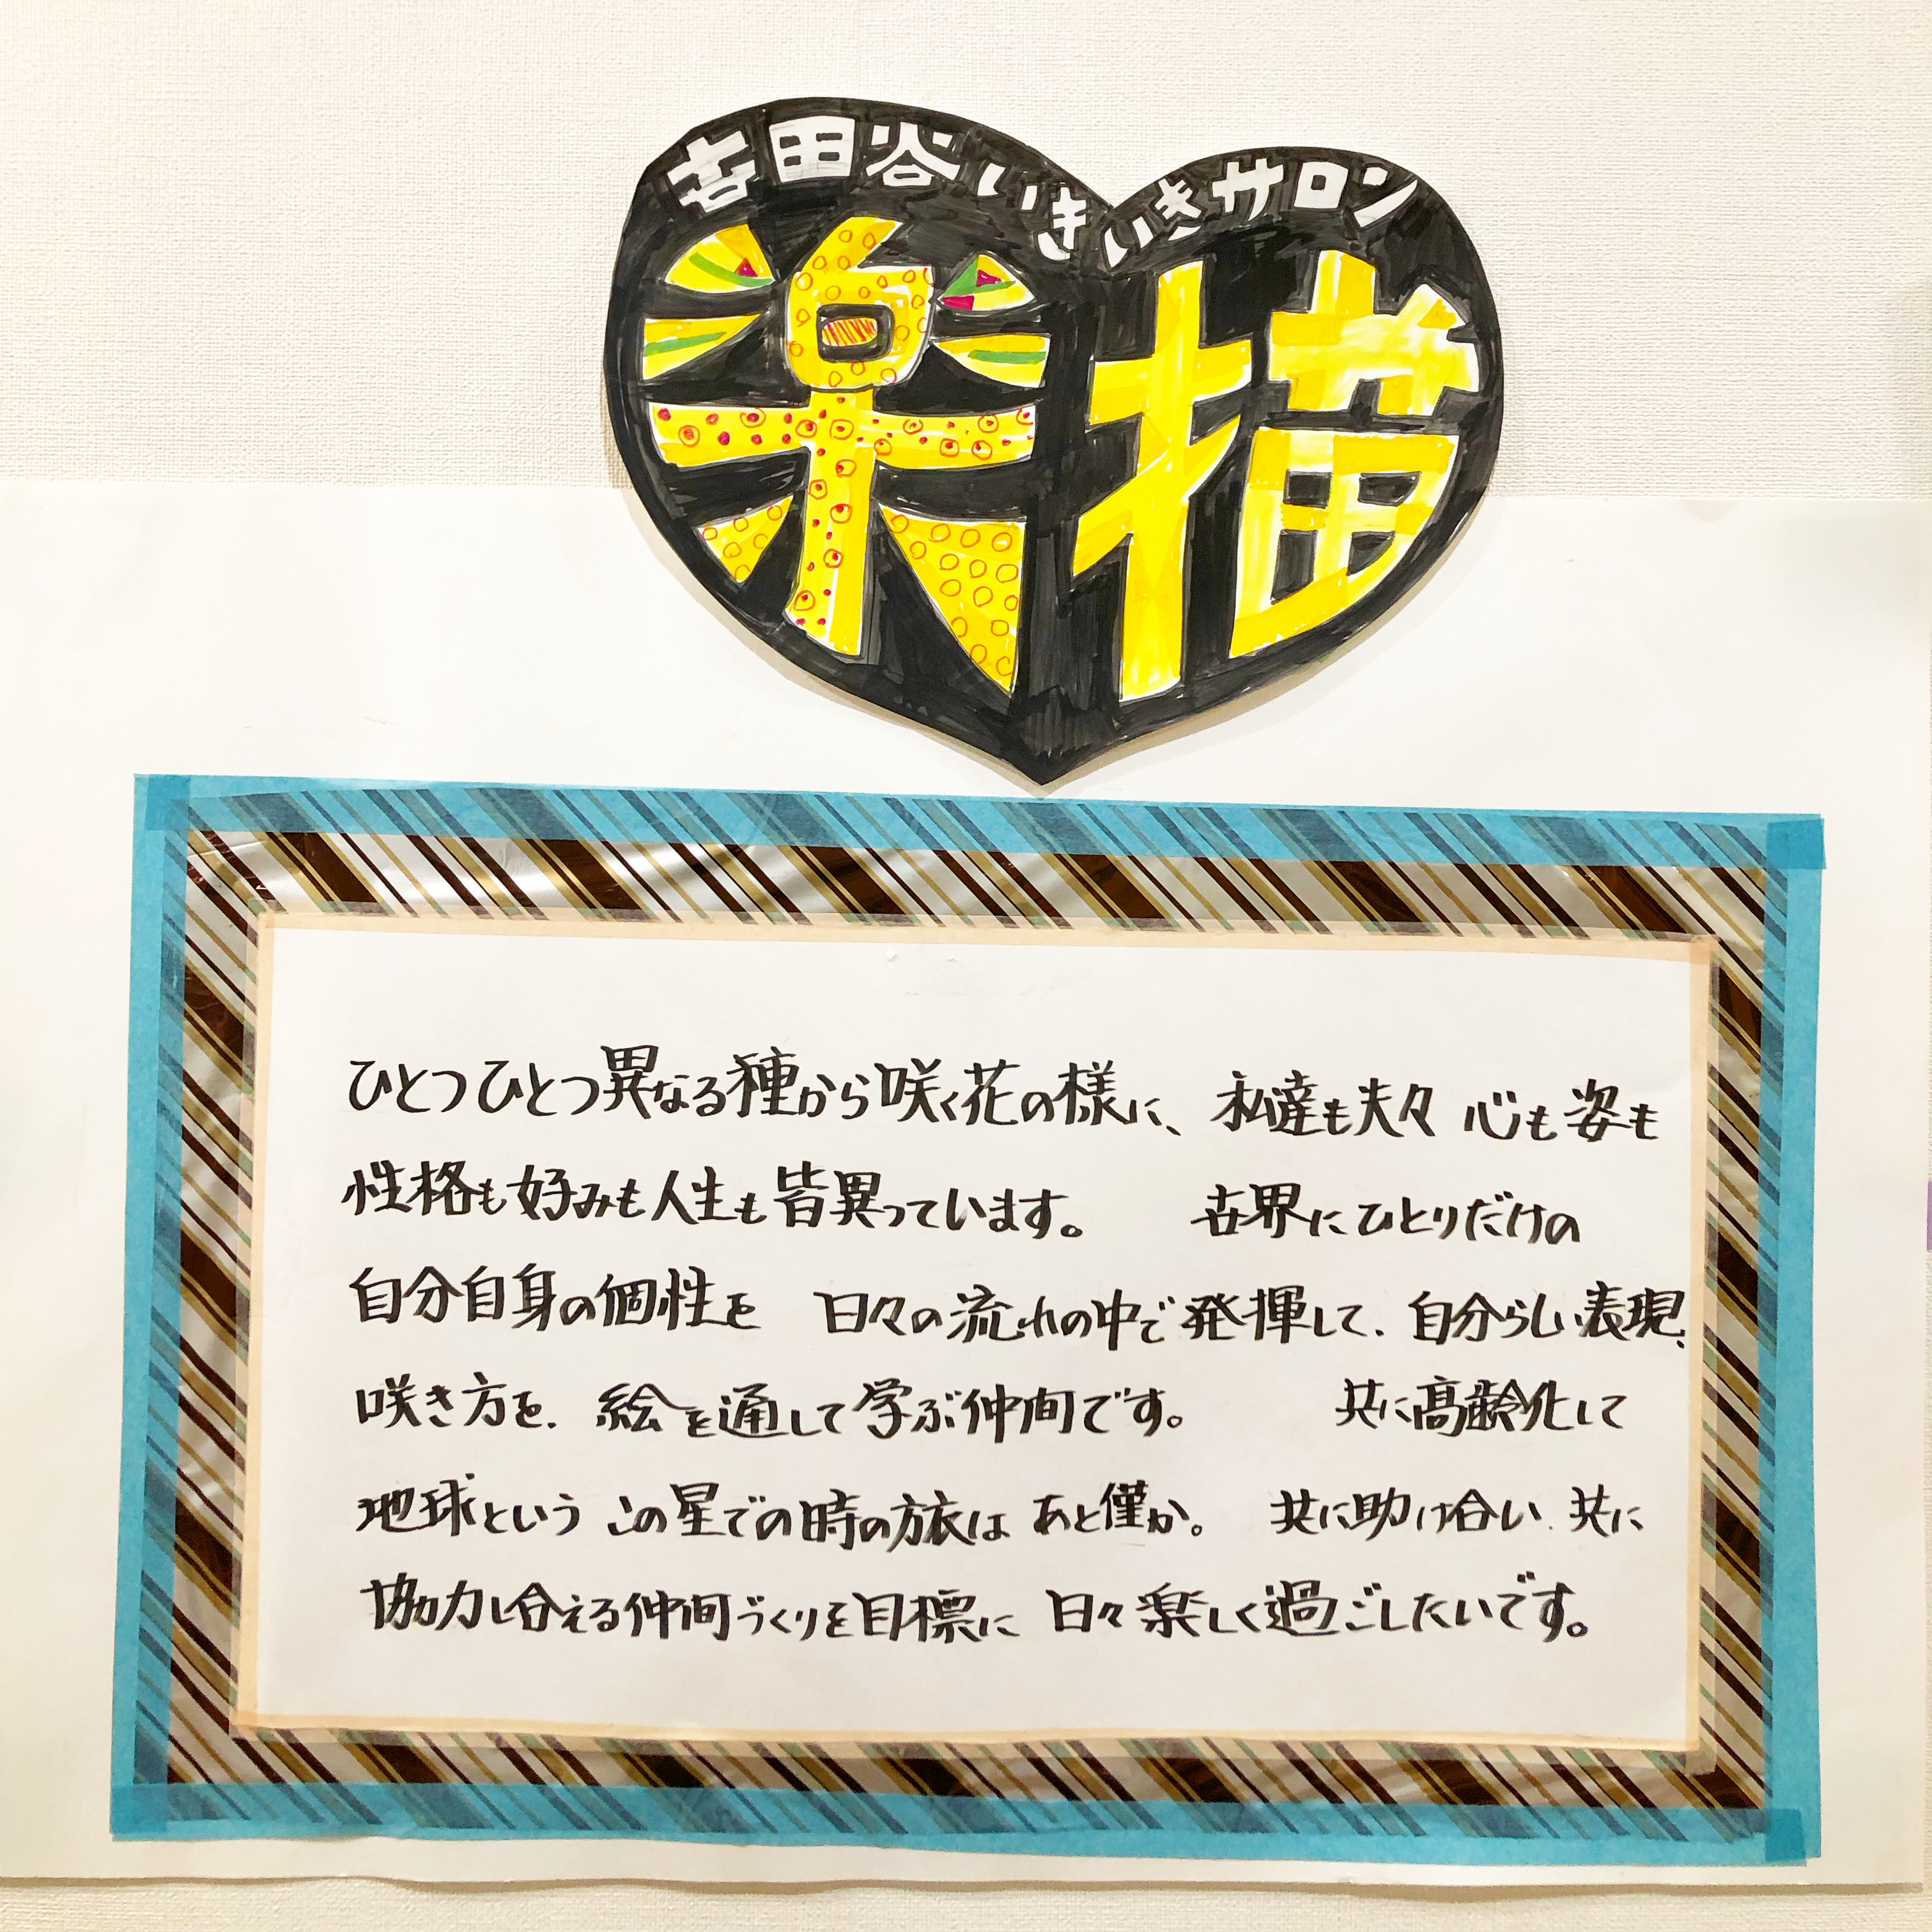 世田谷いきいきサロン
楽描
ひとつひとつ異なる種から咲く花の様に、私達も夫々 心も姿も
性格も好みも人生も皆異っています。 世界にひとりだけの
自分自身の個性を 日々の流れの中で発揮して、自分らしい表現、
咲き方を、絵を通して学ぶ仲間です。 共に高齢化して
地球という この星での時の旅は あと僅か。 共に助け合い、共に
協力し合える仲間づくりを目標に 日々楽しく過ごしたいです。